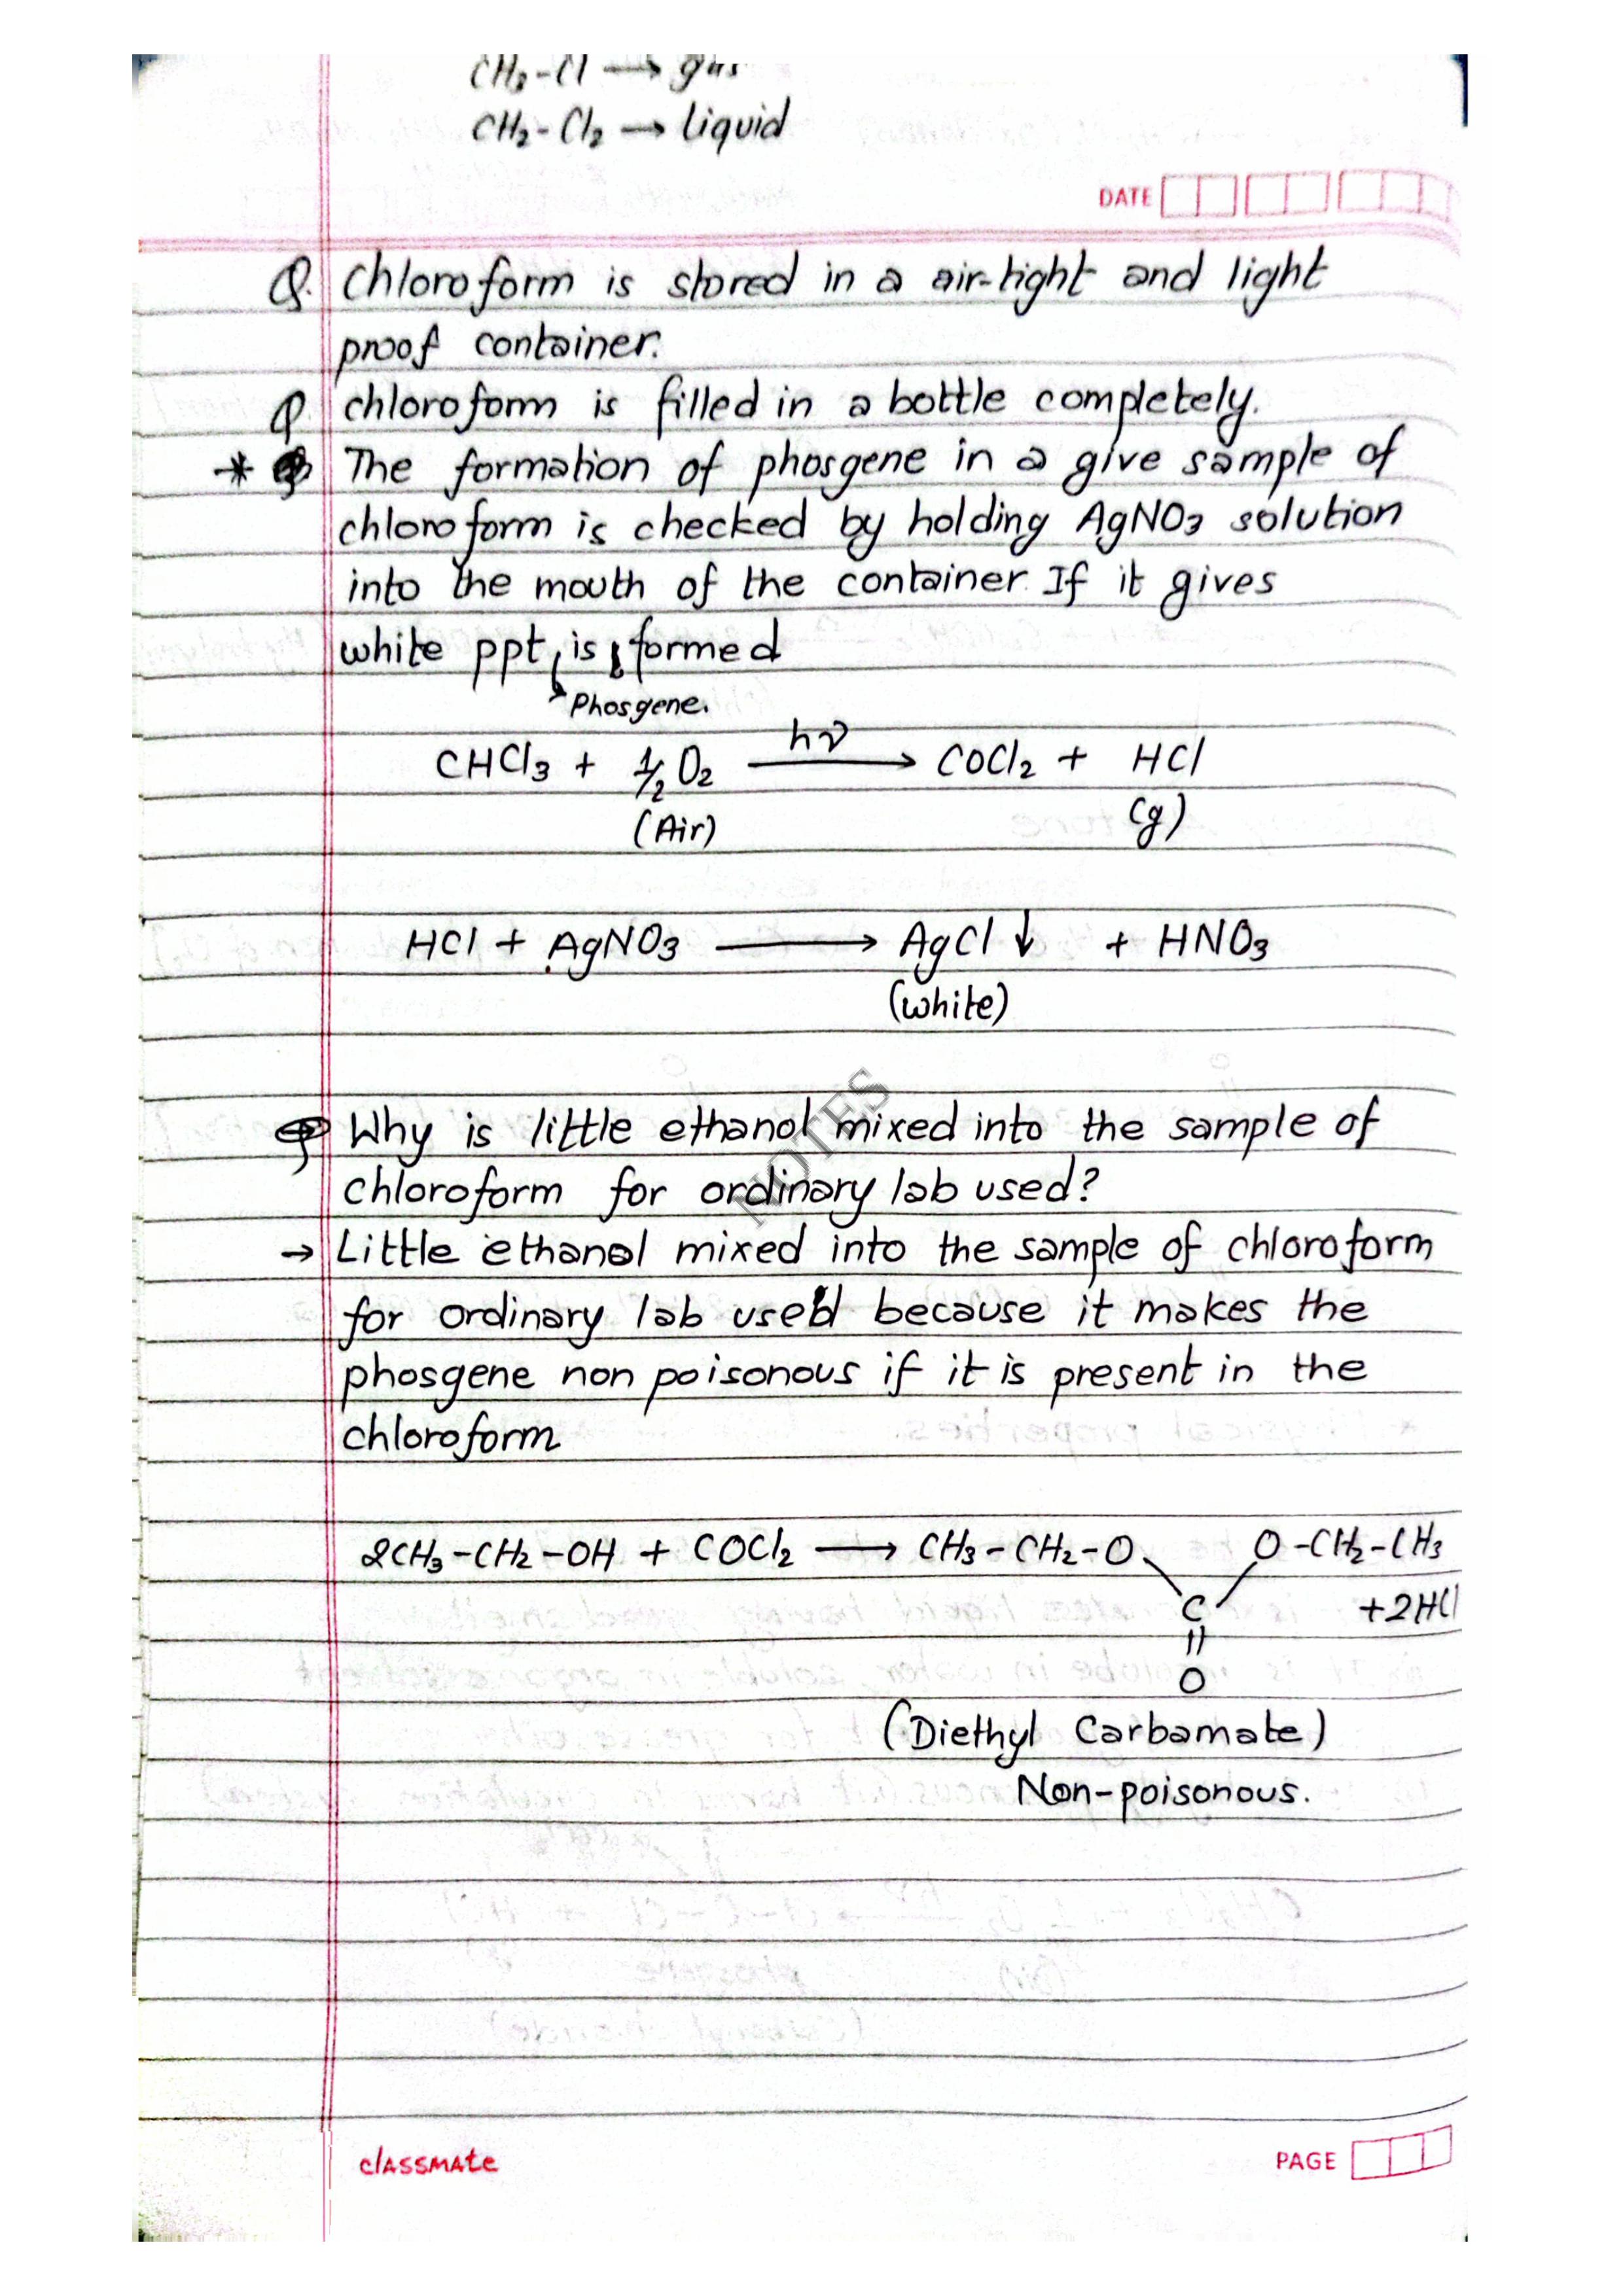 CH3-Cl → gas
CH2-Cl2 → liquid
DATE
Q. Chloroform is stored in a air-tight and light
proof container.
Q. chloroform is filled in a bottle completely.
* Q The formation of phosgene in a give sample of
chloroform is checked by holding AgNO3 solution
into the mouth of the container. If it gives
white ppt, is formed
Phosgene.
CHCl3 + 1/2 O2 hν→ COCl2 + HCl
(Air) (g)
HCl + AgNO3 → AgCl ↓ + HNO3
(white)
NOTES
Q Why is little ethanol mixed into the sample of
chloroform for ordinary lab used?
→ Little ethanol mixed into the sample of chloroform
for ordinary lab used because it makes the
phosgene non poisonous if it is present in the
chloroform
2CH3-CH2-OH + COCl2 → CH3-CH2-O O-CH2-CH3
C +2HCl
||
O
(Diethyl Carbamate)
Non-poisonous.
classmate
PAGE